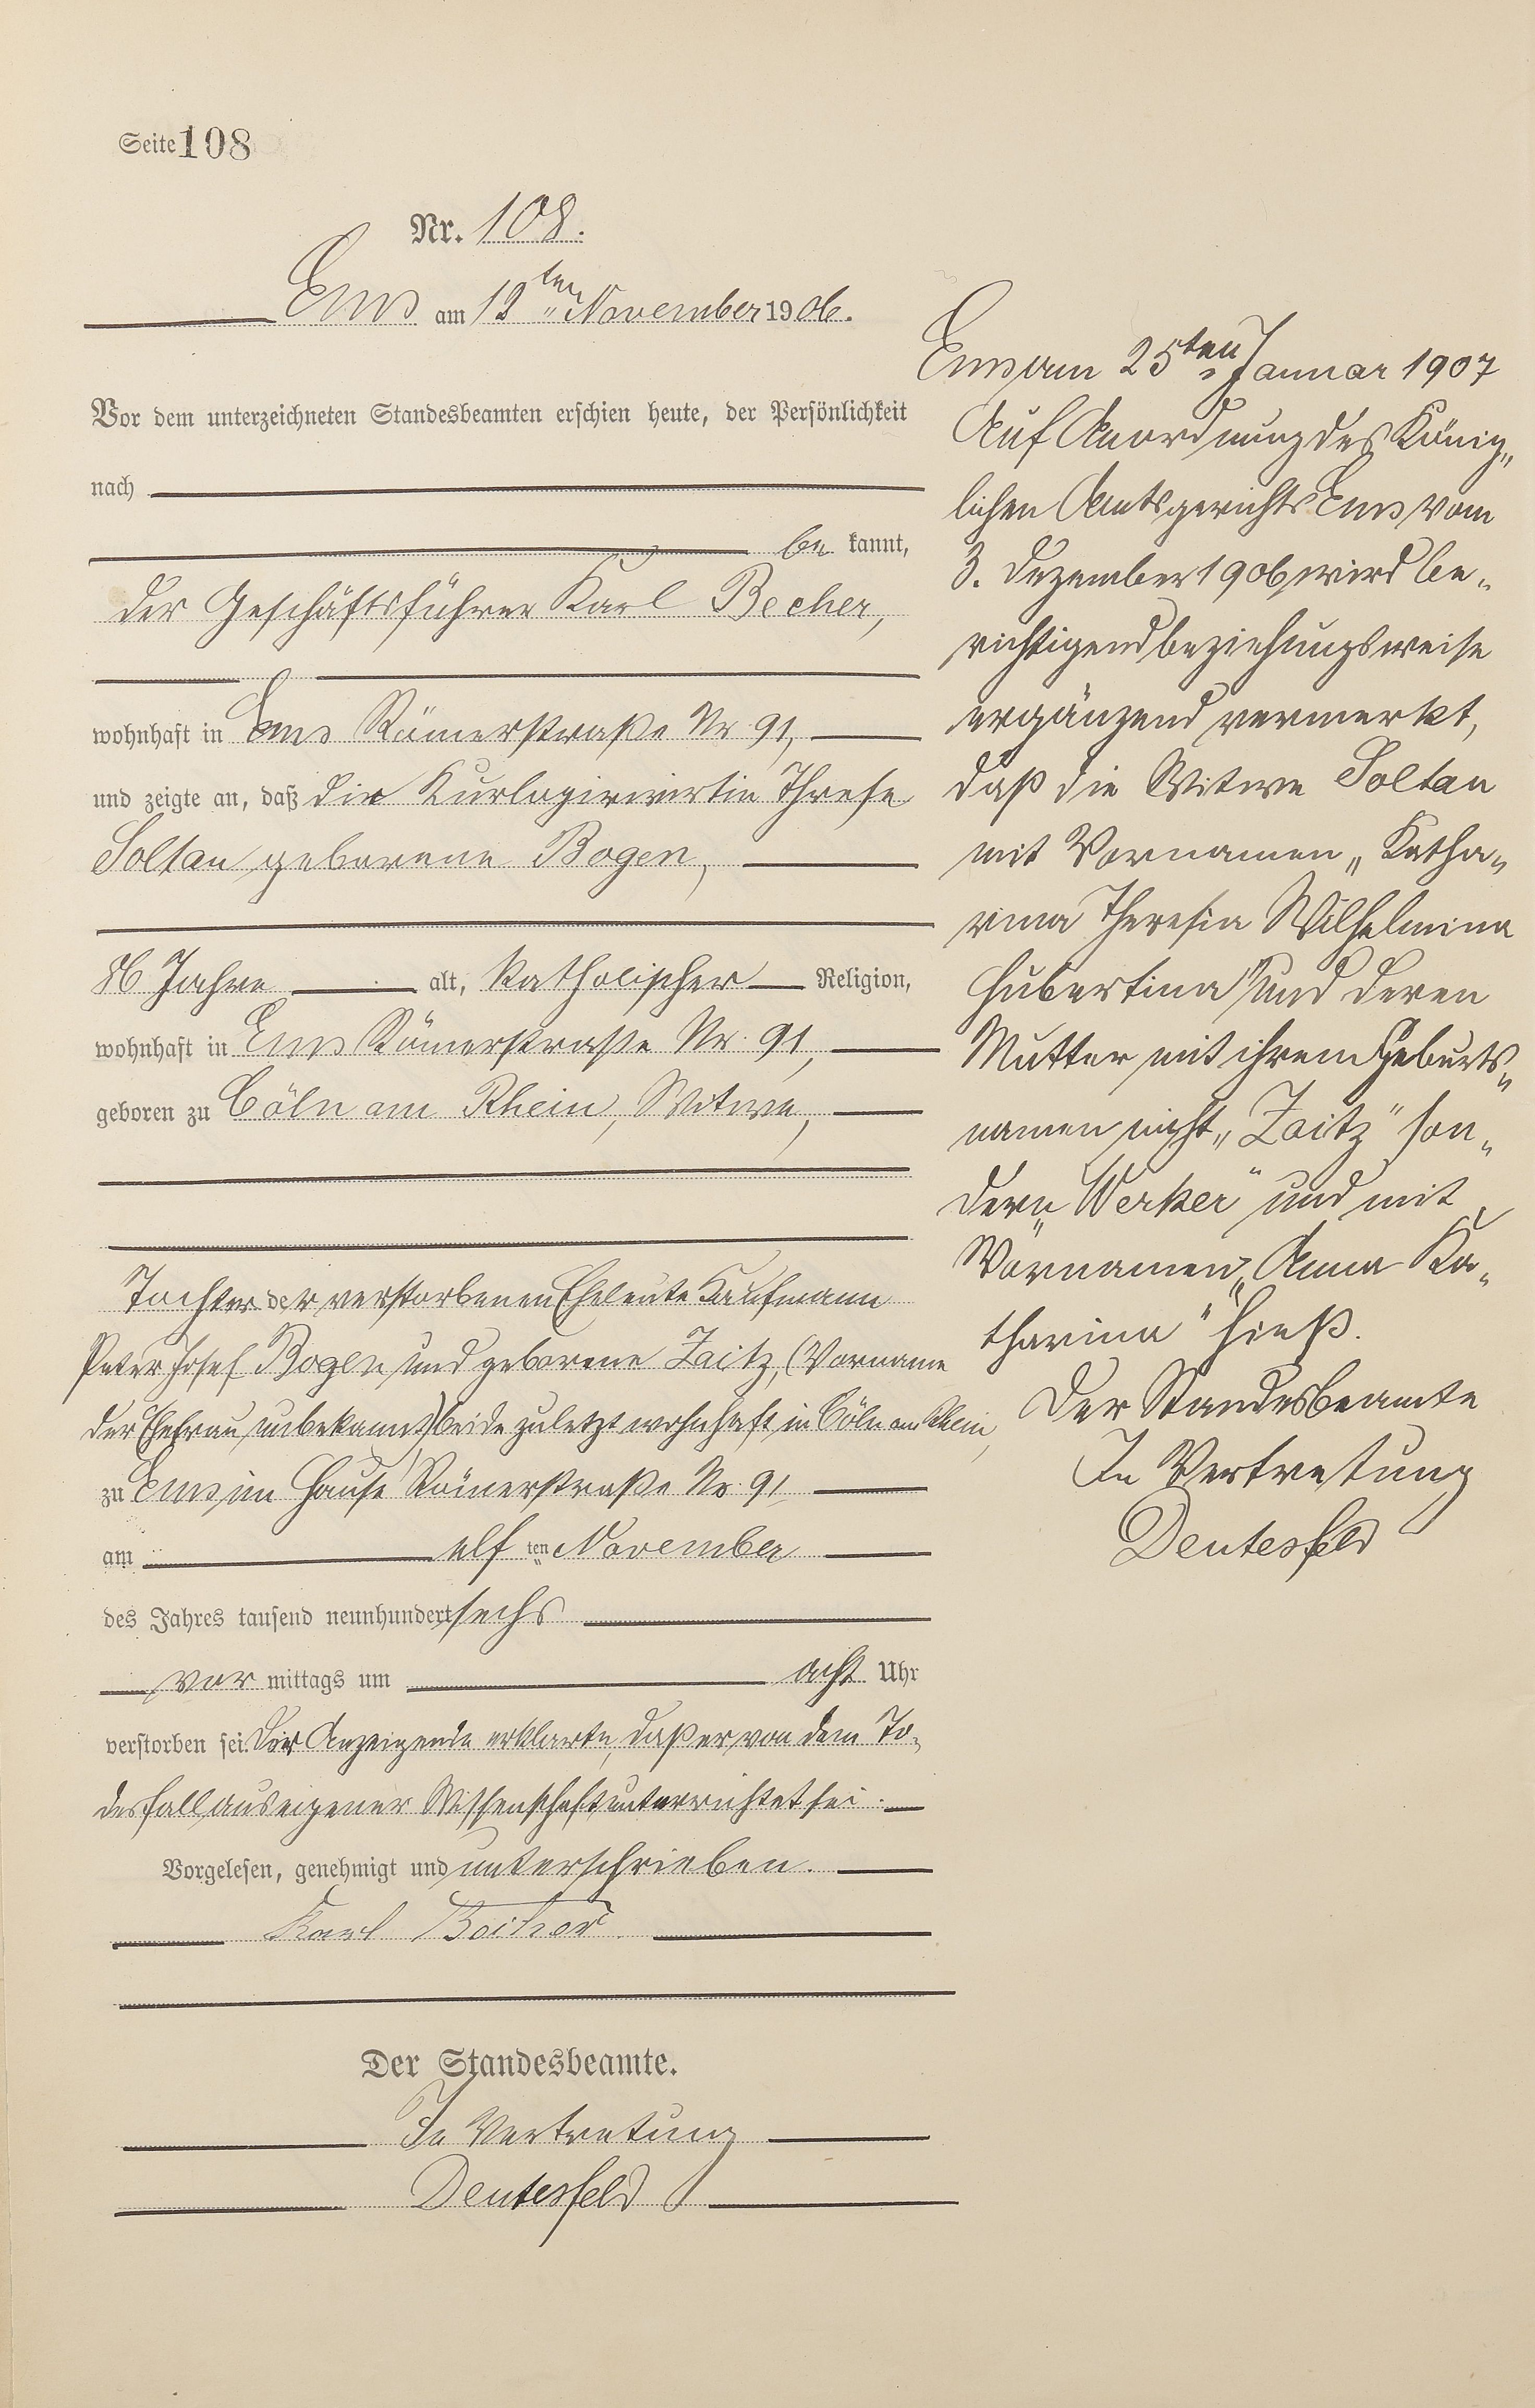 Seite 108
Nr. 108.
Ems am 12ten November 1906.
Vor dem unterzeichneten Standesbeamten erschien heute, der Persönlichkeit
nach
be kannt,
der Geschäftsführer Karl Becher,
wohnhaft in Ems Römerstraße Nr. 91,
und zeigte an, daß die Kurlogirwirtin Threse
Soltau geborene Bogen,
86 Jahre alt, katholischer Religion,
wohnhaft in Ems Römerstraße Nr. 91,
geboren zu Cöln am Rhein, Witwe,
Tochter der verstorbenen Eheleute Kaufmann
Peter Josef Bogen und geborene Zaitz, (Vorname
der Ehefrau unbekannt) beide zuletzt wohnhaft in Cöln am Rhein,
zu Ems im Hause Römerstraße Nr. 91
am elf ten November
des Jahres tausend neunhundert sechs
vor mittags um acht Uhr
verstorben sei. Der Anzeigende erklärte, daß er von dem To-
desfall aus eigener Wissenschaft unterrichtet sei.
Vorgelesen, genehmigt und unterschrieben.
Karl Becher
Der Standesbeamte.
In Vertretung
Deutesfeld
Ems am 25ten Januar 1907
Auf Anordnung des König-
lichen Amtsgerichts Ems vom
3. Dezember 1906 wird be-
richtigend beziehungsweise
ergänzend vermerkt,
daß die Witwe Soltau
mit Vornamen „Katha-
rina Theresia Wilhelmina
Hubertina" und deren
Mutter mit ihrem Geburts-
namen nicht „Zaitz" son-
dern „Werker" und mit
Vornamen „Anna Ka-
tharina" hieß.
Der Standesbeamte
In Vertretung
Deutesfeld